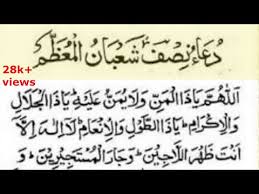 دُعَاءِ نِصْفِ شَعْبَانُ الْمُعَظَّمْ
28k+
views
اَللّٰهُمَّ يَاذَا الْمَنِّ وَلَا يُمَنُّ عَلَيْهِ يَاذَا الْجَلَالِ
وَالْاِكْرَامِ يَاذَا الطَّوْلِ وَالْاِنْعَامِ لَآ اِلٰهَ اِلَّآ
اَنْتَ ظَهْرُ اللَّاجِيْنَ وَجَارُ الْمُسْتَجِيْرِيْنَ وَ